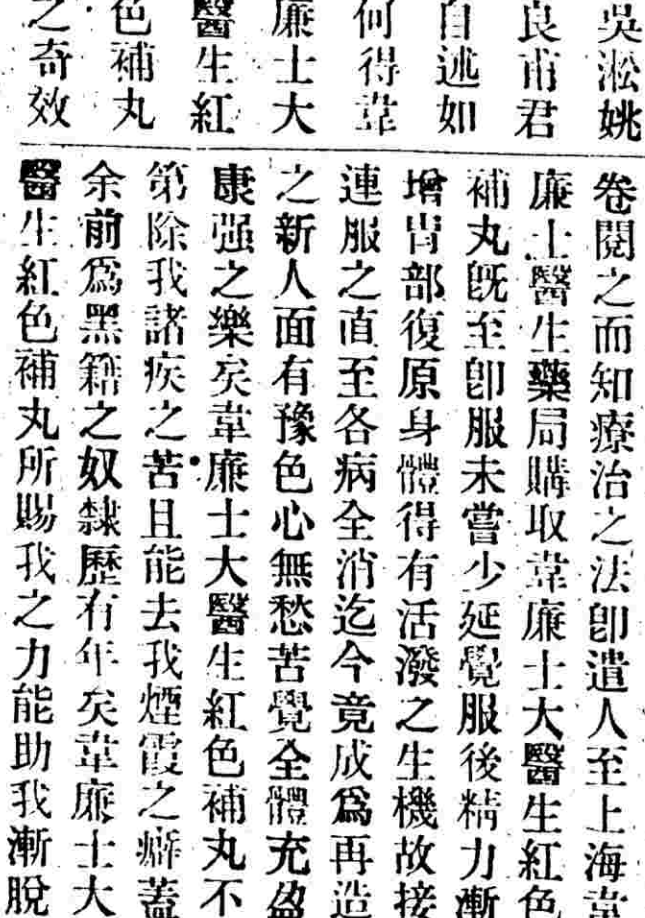 吳淞姚
良甫君
自述如
何得韋
廉士大
醫生紅
色補丸
之奇效
卷閱之而知療治之法卽遣人至上海韋
廉士醫生藥局購取韋廉士大醫生紅色
補丸旣至卽服未嘗少延覺服後精力漸
增胃部復原身體得有活潑之生機故接
連服之直至各病全消迄今竟成爲再造
之新人面有豫色心無愁苦覺全體充盈
康强之樂矣韋廉士大醫生紅色補丸不
第除我諸疾之苦且能去我煙霞之癖蓋
余前爲黑籍之奴隸歷有年矣韋廉士大
醫生紅色補丸所賜我之力能助我漸脫